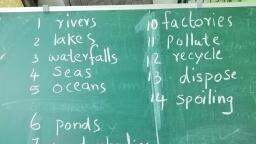 1 rivers
2 lakes
3 waterfalls
4 seas
5 oceans
6 ponds
7
10 factories
11 Pollute
12 recycle
13 dispose
14 spoiling